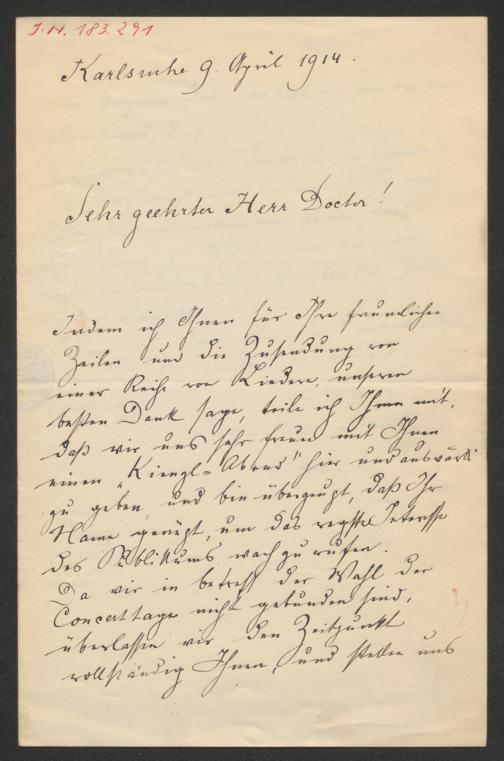 I.N. 183.291
Karlsruhe 9. April 1914.
Sehr geehrter Herr Doctor!
Indem ich Ihnen für Ihre freundlichen
Zeilen und die Zusendung von
einer Reihe von Liedern, unseren
besten Dank sage, teile ich Ihnen mit,
daß wir uns sehr freuen mit Ihnen
einen "Kienzl-Abend" hier und auswärts
zu geben, und bin überzeugt, daß Ihr
Name genügt, um das regste Interesse
des Publikums wach zu rufen.
Da wir in betreff der Wahl der
Concerttage nicht gebunden sind,
überlassen wir den Zeitpunkt
vollständig Ihnen, und stellen uns